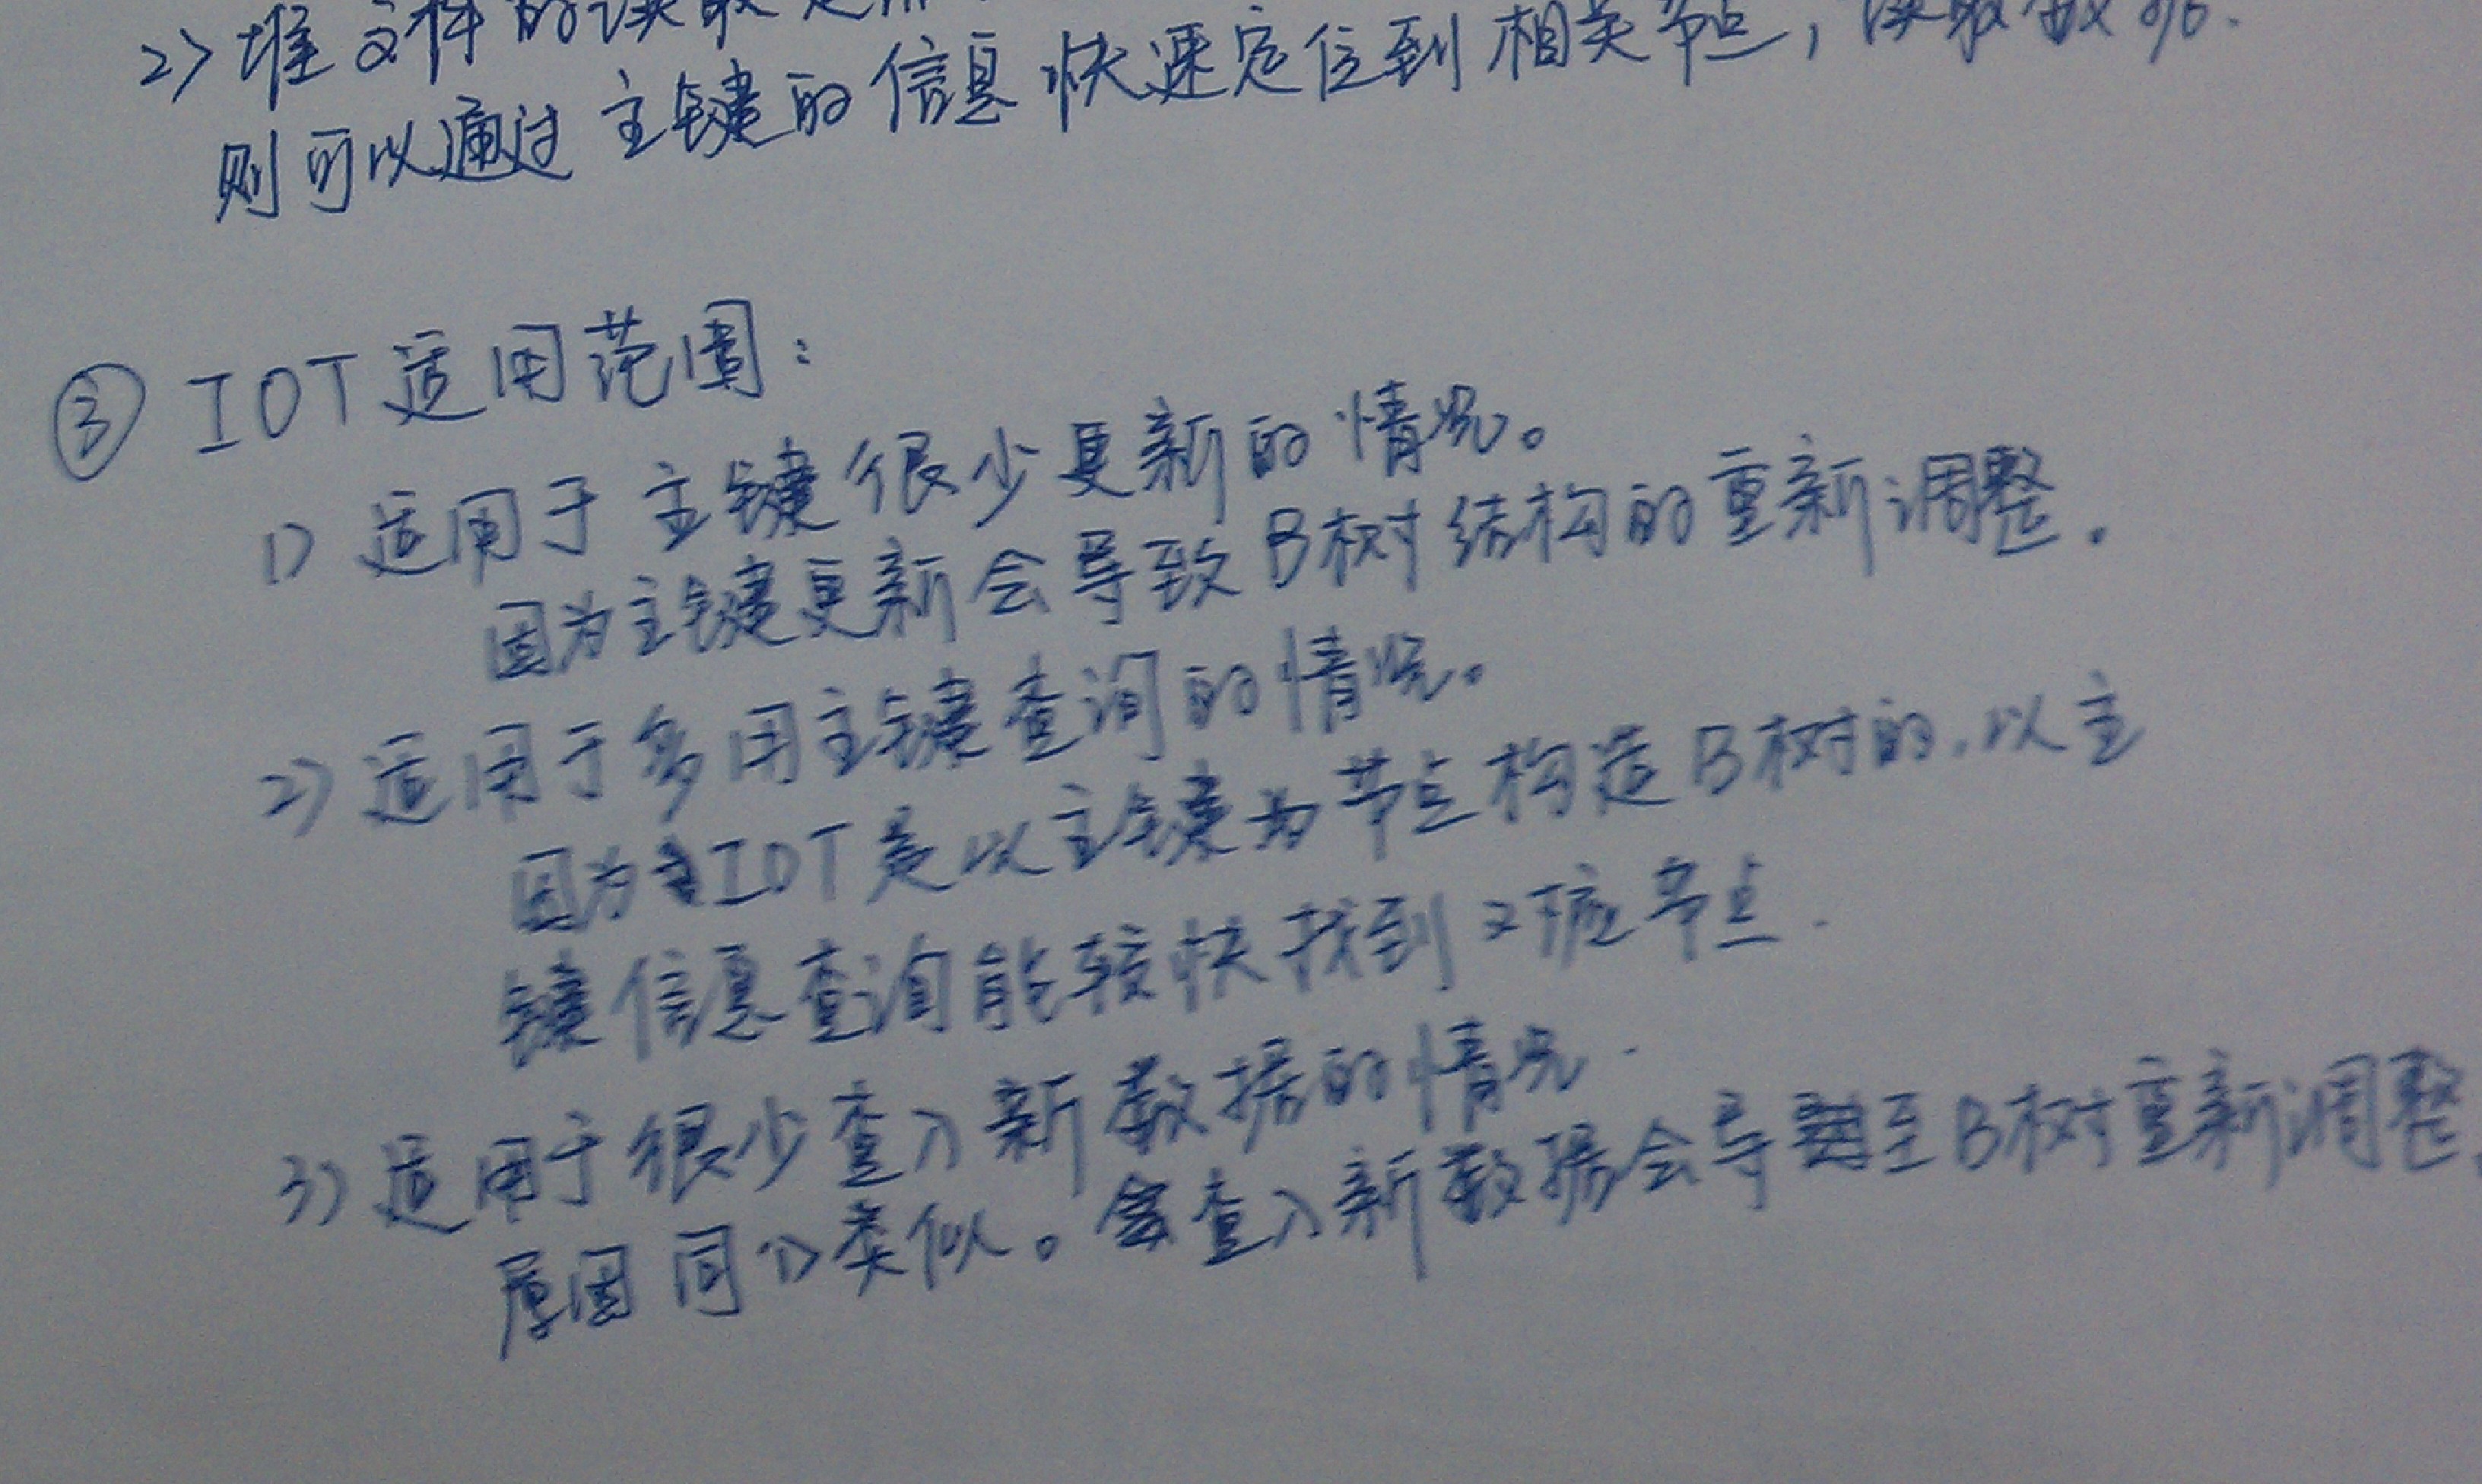 2) 堆文件的读取是
则可以通过主键的信息快速定位到相关节点，读取数据.
③ IOT适用范围：
1) 适用于主键很少更新的情况。
因为主键更新会导致B树结构的重新调整.
2) 适用于多用主键查询的情况。
因为IOT是以主键为节点构造B树的.以主
键信息查询能较快找到对应节点.
3) 适用于很少查入新数据的情况.
原因同1)类似。查入新数据会导至B树重新调整.